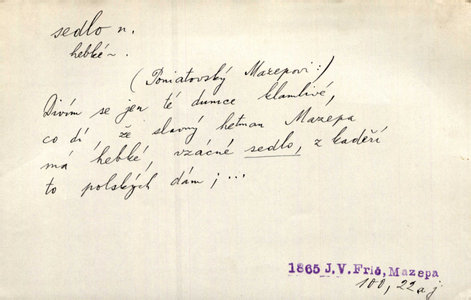 sedlo n.
hebké ~.
(Poniatovský Mazepovi:)
Divím se jen té dumce klamlivé,
co dí, že slavný hetman Mazepa
má hebké, vzácné sedlo, z kadeří
to polských dám; ...
1865 J.V. Frič, Mazepa
100, 22 a j